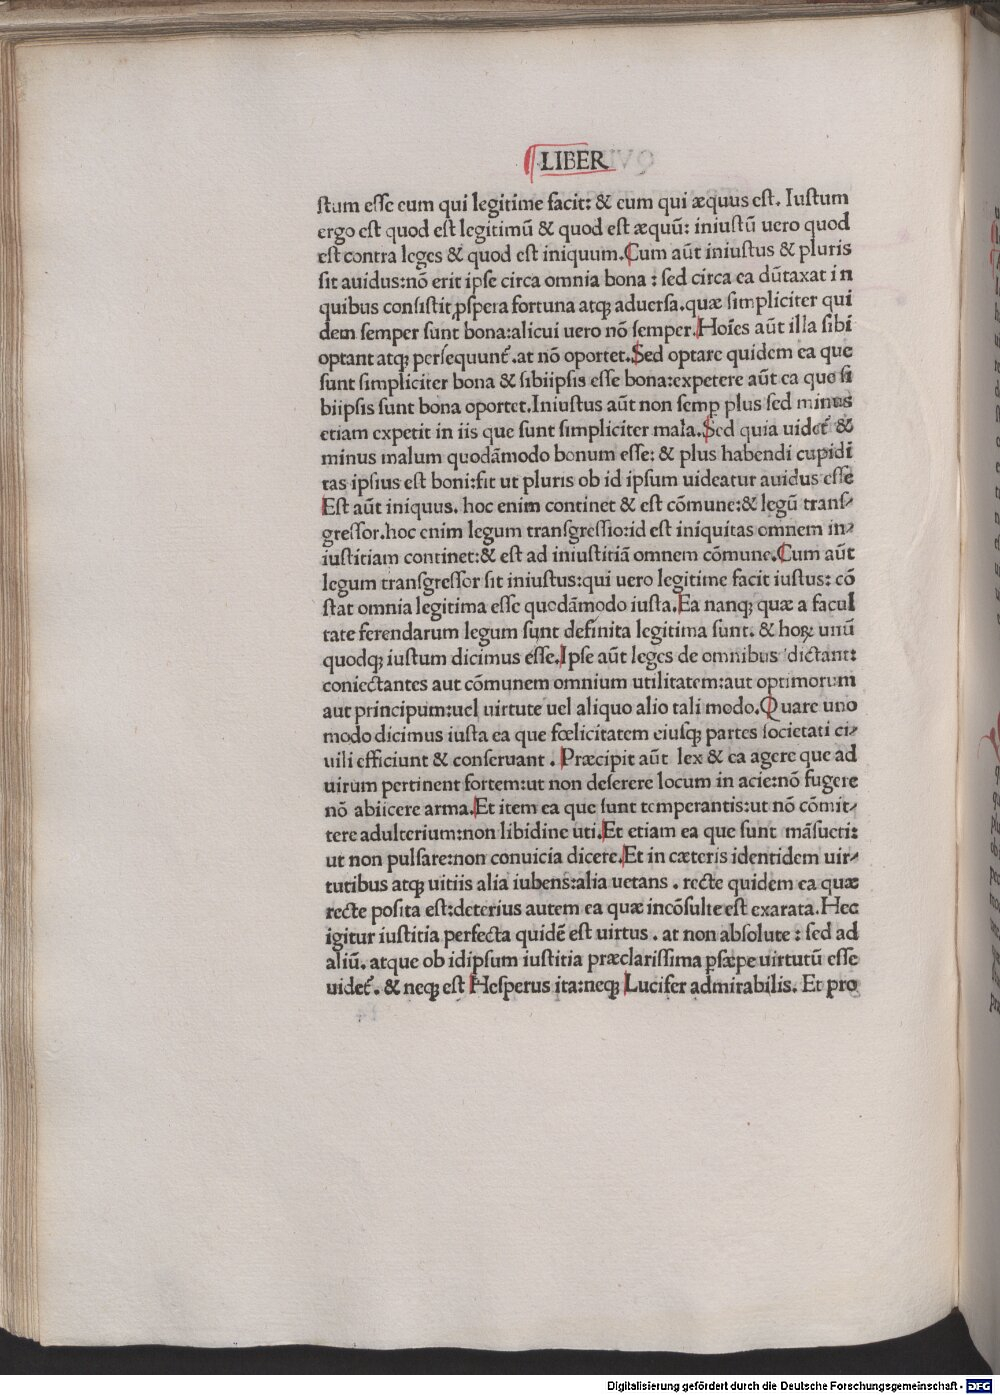 LIBER
stum esse eum qui legitime facit: & eum qui æquus est. Iustum
ergo est quod est legitimū & quod est æquū: iniustū uero quod
est contra leges & quod est iniquum. Cum aūt iniustus & pluris
sit auidus: nō erit ipse circa omnia bona : sed circa ea dūtaxat in
quibus consistit ꝓspera fortuna atqꝫ aduersa. quæ simpliciter qui
dem semper sunt bona: alicui uero nō semper. Hoīes aūt illa sibi
optant atqꝫ persequunt᷑. at nō oportet. Sed optare quidem ea que
sunt simpliciter bona & sibiipsis esse bona: expetere aūt ea que si
biipsis sunt bona oportet. Iniustus aūt non semꝑ plus sed minus
etiam expetit in iis que sunt simpliciter mala. Sed quia uidet᷑ &
minus malum quodāmodo bonum esse: & plus habendi cupidi
tas ipsius est boni: fit ut pluris ob id ipsum uideatur auidus esse
Est aūt iniquus. hoc enim continet & est cōmune: & legū transſ-
gressor. hoc enim legum transgressio: id est iniquitas omnem in-
iustitiam continet: & est ad iniustitiā omnem cōmune. Cum aūt
legum transgressor sit iniustus: qui uero legitime facit iustus: cō
stat omnia legitima esse quodāmodo iusta. Ea nanqꝫ quæ a facul
tate ferendarum legum sunt definita legitima sunt. & hoꝝ unū
quodqꝫ iustum dicimus esse. Ipse aūt leges de omnibus dictant:
coniectantes aut cōmunem omnium utilitatem: aut optimorum
aut principum: uel uirtute uel aliquo alio tali modo. Quare uno
modo dicimus iusta ea que fœlicitatem eiusqꝫ partes societati ci-
uili efficiunt & conseruant . Præcipit aūt lex & ea agere que ad
uirum pertinent fortem: ut non deserere locum in acie: nō fugere
nō abiicere arma. Et item ea que sunt temperantis: ut nō cōmit-
tere adulterium: non libidine uti. Et etiam ea que sunt māsueti:
ut non pulsare: non conuicia dicere. Et in cæteris identidem uir-
tutibus atqꝫ uitiis alia iubens: alia uetans . recte quidem ea quæ
recte posita est: deterius autem ea quæ incōsulte est exarata. Hec
igitur iustitia perfecta quidē est uirtus . at non absolute : sed ad
aliū. atque ob idipsum iustitia præclarissima ꝑsæpe uirtutū esse
uidet᷑. & neqꝫ est Hesperus ita: neqꝫ Lucifer admirabilis. Et pro
Digitalisierung gefördert durch die Deutsche Forschungsgemeinschaft - DFG